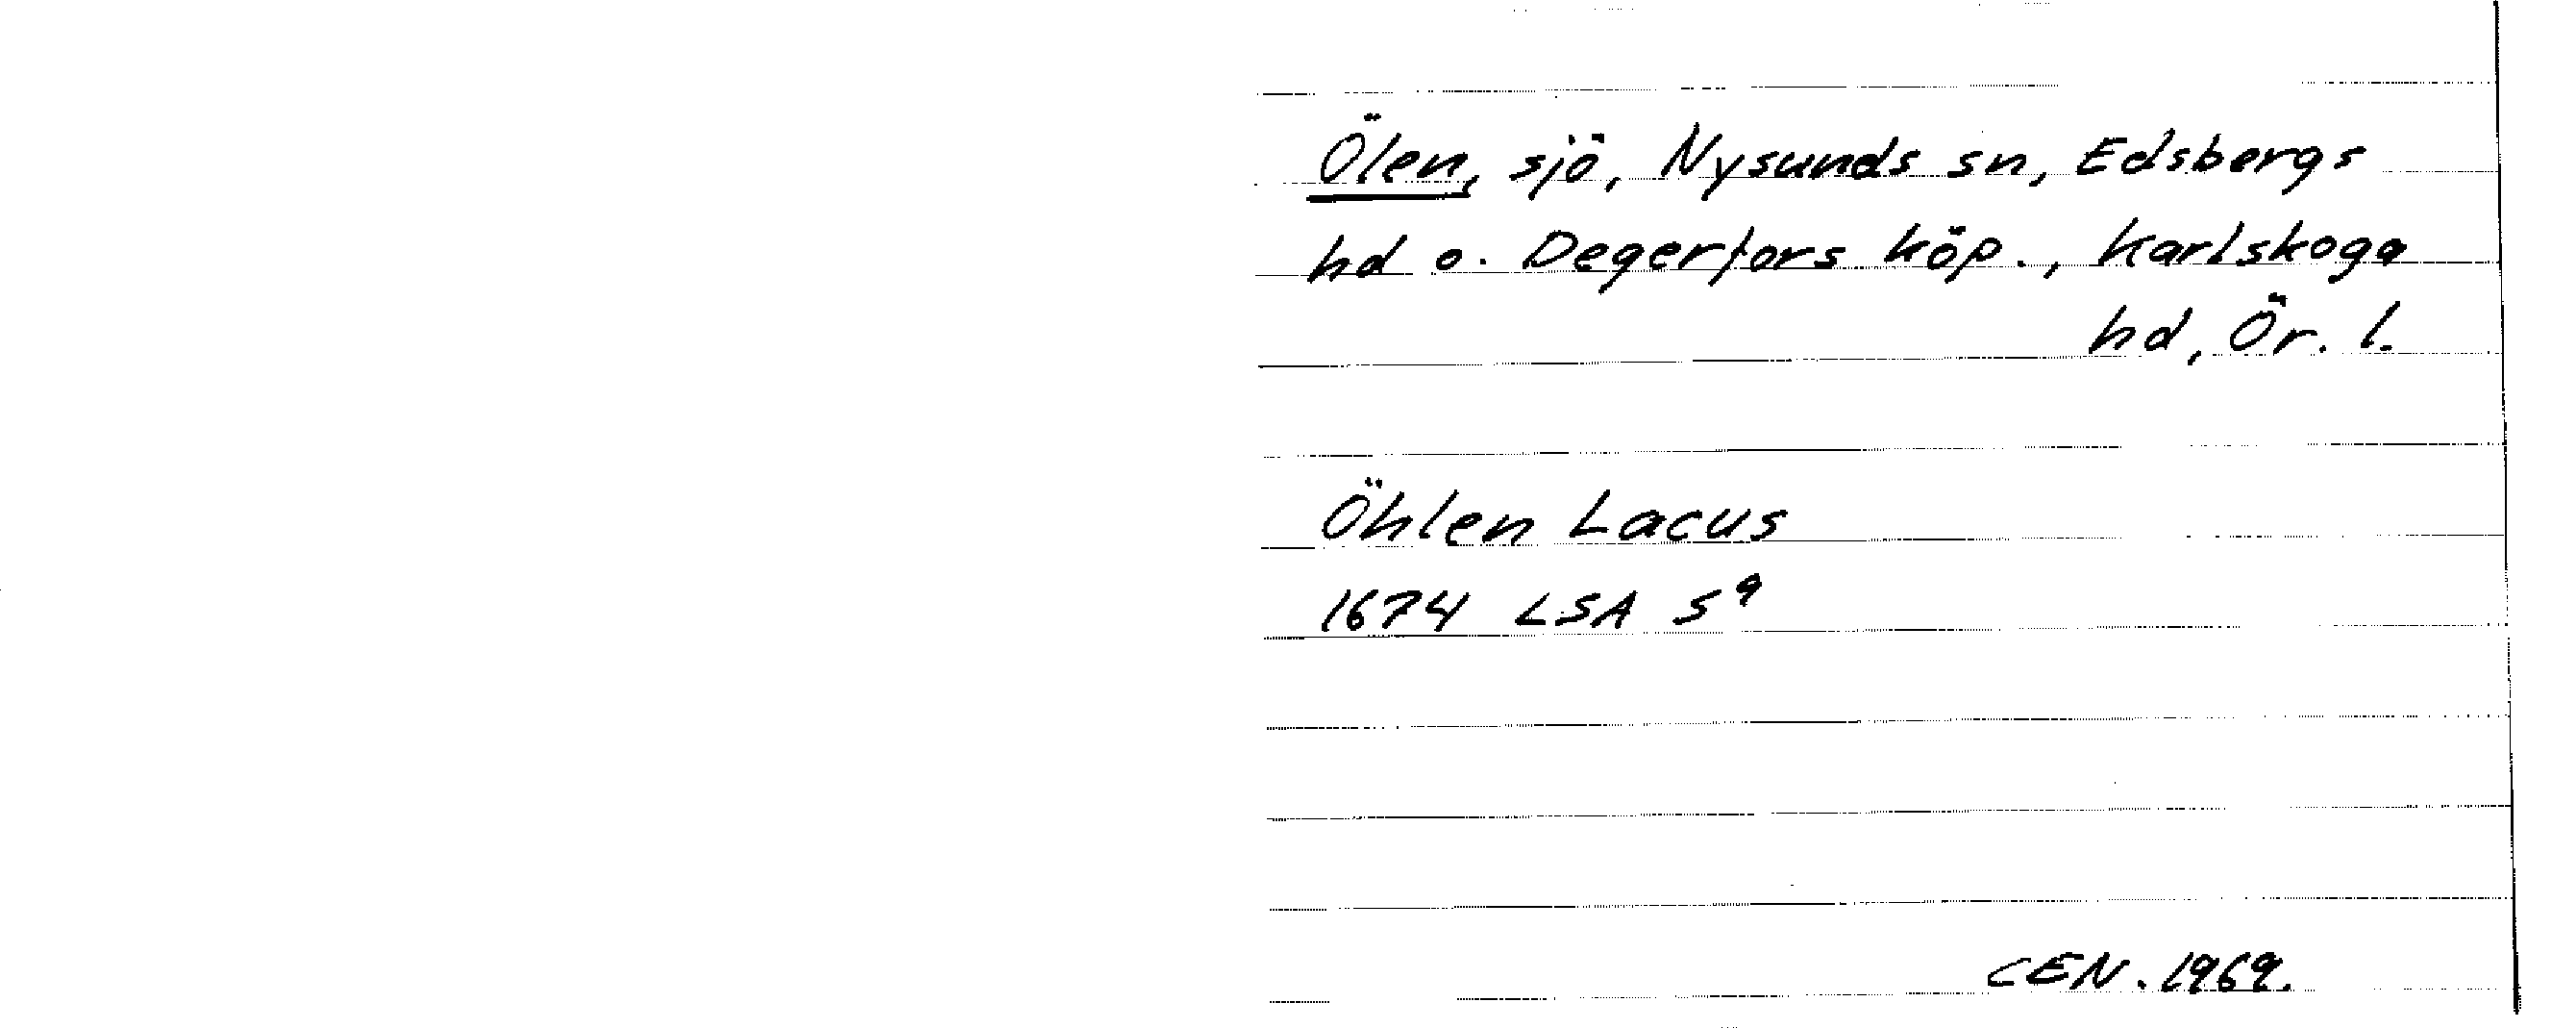 Ölen, sjö, Nysunds sn, Edsbergs
hd o. Degerfors köp., Karlskoga
hd, Ör. l.
Öhlen Lacus
1674 LSA S⁹
CEN. 1969.